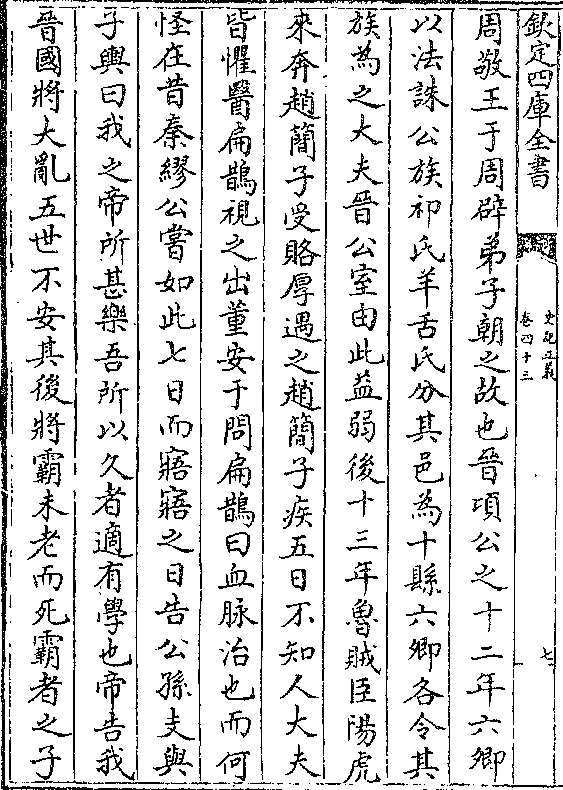 欽定四庫全書
史記正義
卷四十三
七
周敬王于周辟弟子朝之故也晉項公之十二年六卿
以法誅公族祁氏羊舌氏分其邑為十縣六卿各令其
族為之大夫晉公室由此益弱後十三年魯賊臣陽虎
來奔趙簡子受賂厚遇之趙簡子疾五日不知人大夫
皆懼醫扁鵲視之出董安于問扁鵲曰血脉治也而何
怪在昔秦繆公嘗如此七日而寤寤之日告公孫支與
子輿曰我之帝所甚樂吾所以久者適有學也帝告我
晉國將大亂五世不安其後將霸未老而死霸者之子